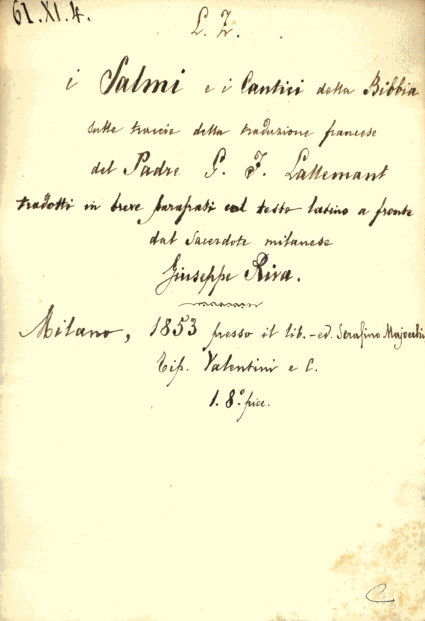 61.XI.4.
L. Z.
i Salmi e i Cantici della Bibbia
sulle traccie della traduzione francese
del Padre G. F. Lallemant
tradotti in breve parafrasi col testo latino a fronte
dal sacerdote milanese
Giuseppe Riva.
Milano, 1853 presso il lib.-ed. Serafino Majocchi
Tip. Valentini e C.
1. 8.° picc.
C